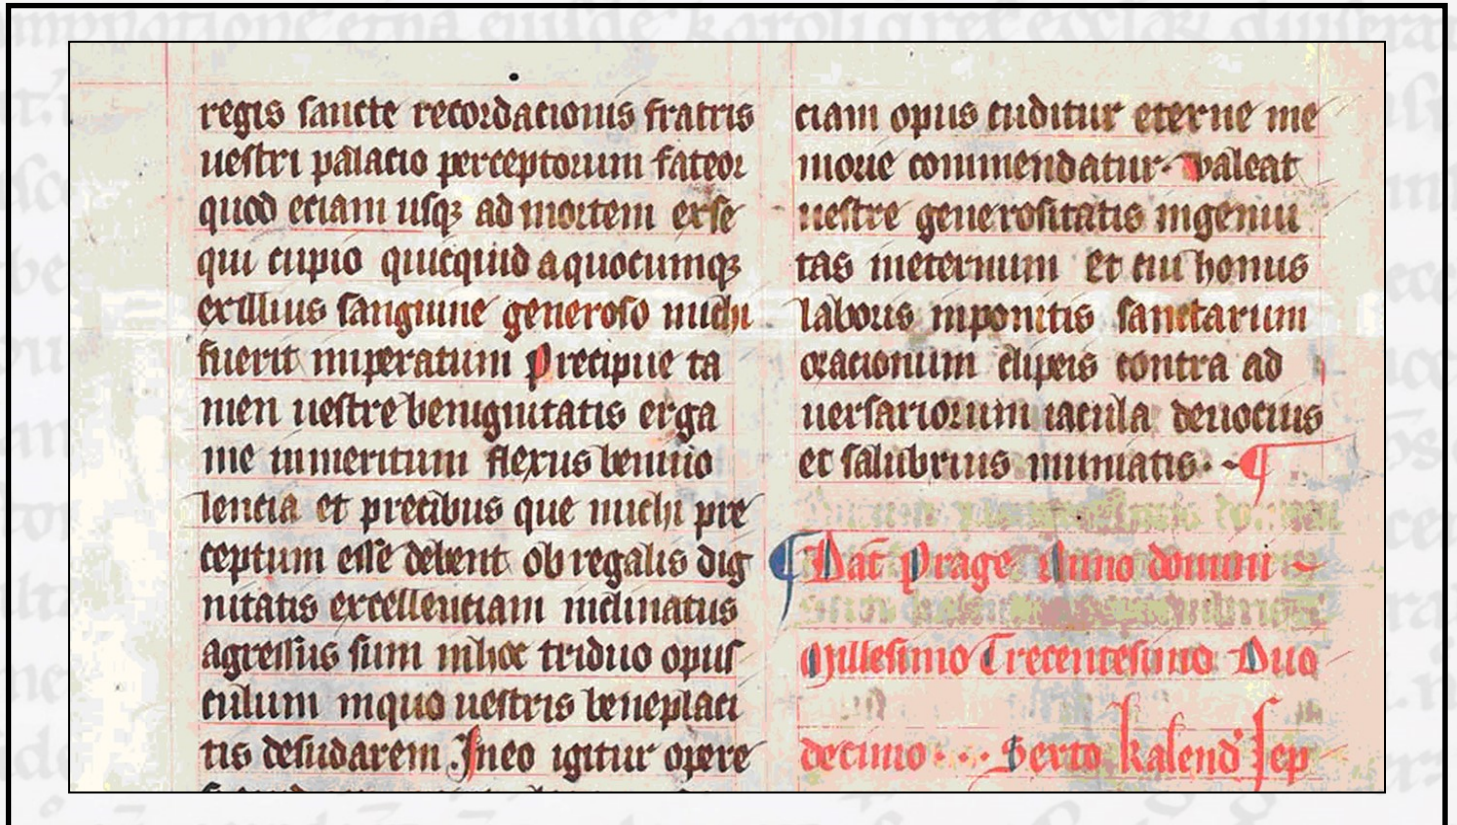 regis sancte recordacionis fratris
uestri palacio perceptorum fateor
quod eciam usqꝫ ad mortem exse
qui cupio quicquid a quocumqꝫ
ex illius sanguine generoso michi
fuerit imperatum Precipue ta
men uestre benignitatis erga
me inmeritum flexus beniuo
lencia et precibus que michi pre
ceptum esse debent ob regalis dig
nitatis excellenciam inclinatus
agressus sum in hoc triduo opus
culum in quo uestris beneplaci
tis desudarem In eo igitur opere
ciam opus cuditur eterne me
morie commendatur. valeat
uestre generositatis ingenui
tas in eternum et cui honus
laboris inponitis sanctarum
oracionum clipeis contra ad
uersariorum iacula deuocius
et salubrius muniatis.
¶ Dat Prage Anno domini
Millesimo Trecentesimo Duo
decimo . . Sexto kalend Sep